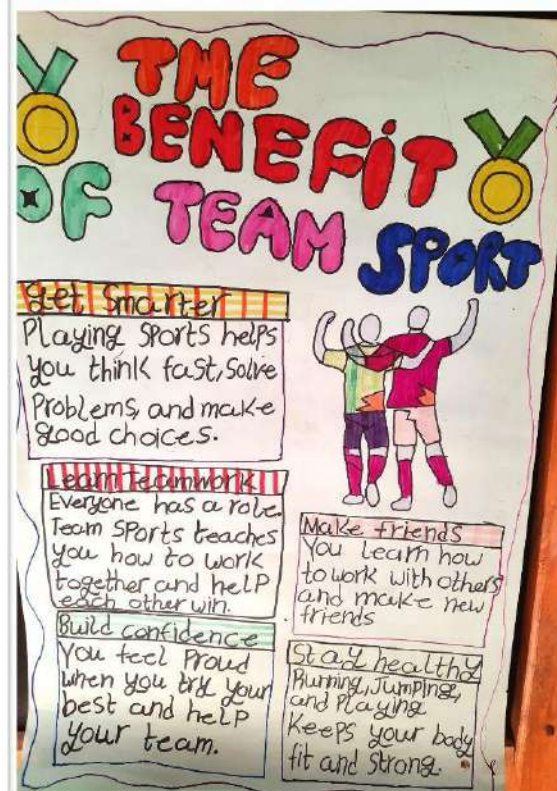 THE
BENEFIT
OF TEAM SPORT
Get Smarter
Playing sports helps
you think fast, Solve
Problems, and make
good choices.
Learn Teamwork
Everyone has a role.
Team SPorts teaches
you how to work
together and helP
each other win.
Build confidence
You feel Proud
when you try your
best and helP
your team.
Make friends
You learn how
to work with others
and make new
friends
Stay healthy
Running, Jumping,
and Playing
KeePs your body
fit and strong.